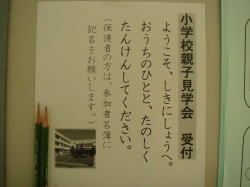 小学校親子見学会　受付
ようこそ、しきにしょうへ。
おうちのひとと、たのしく
たんけんしてください。
（保護者の方は、参加者名簿に
記名をお願いします。）